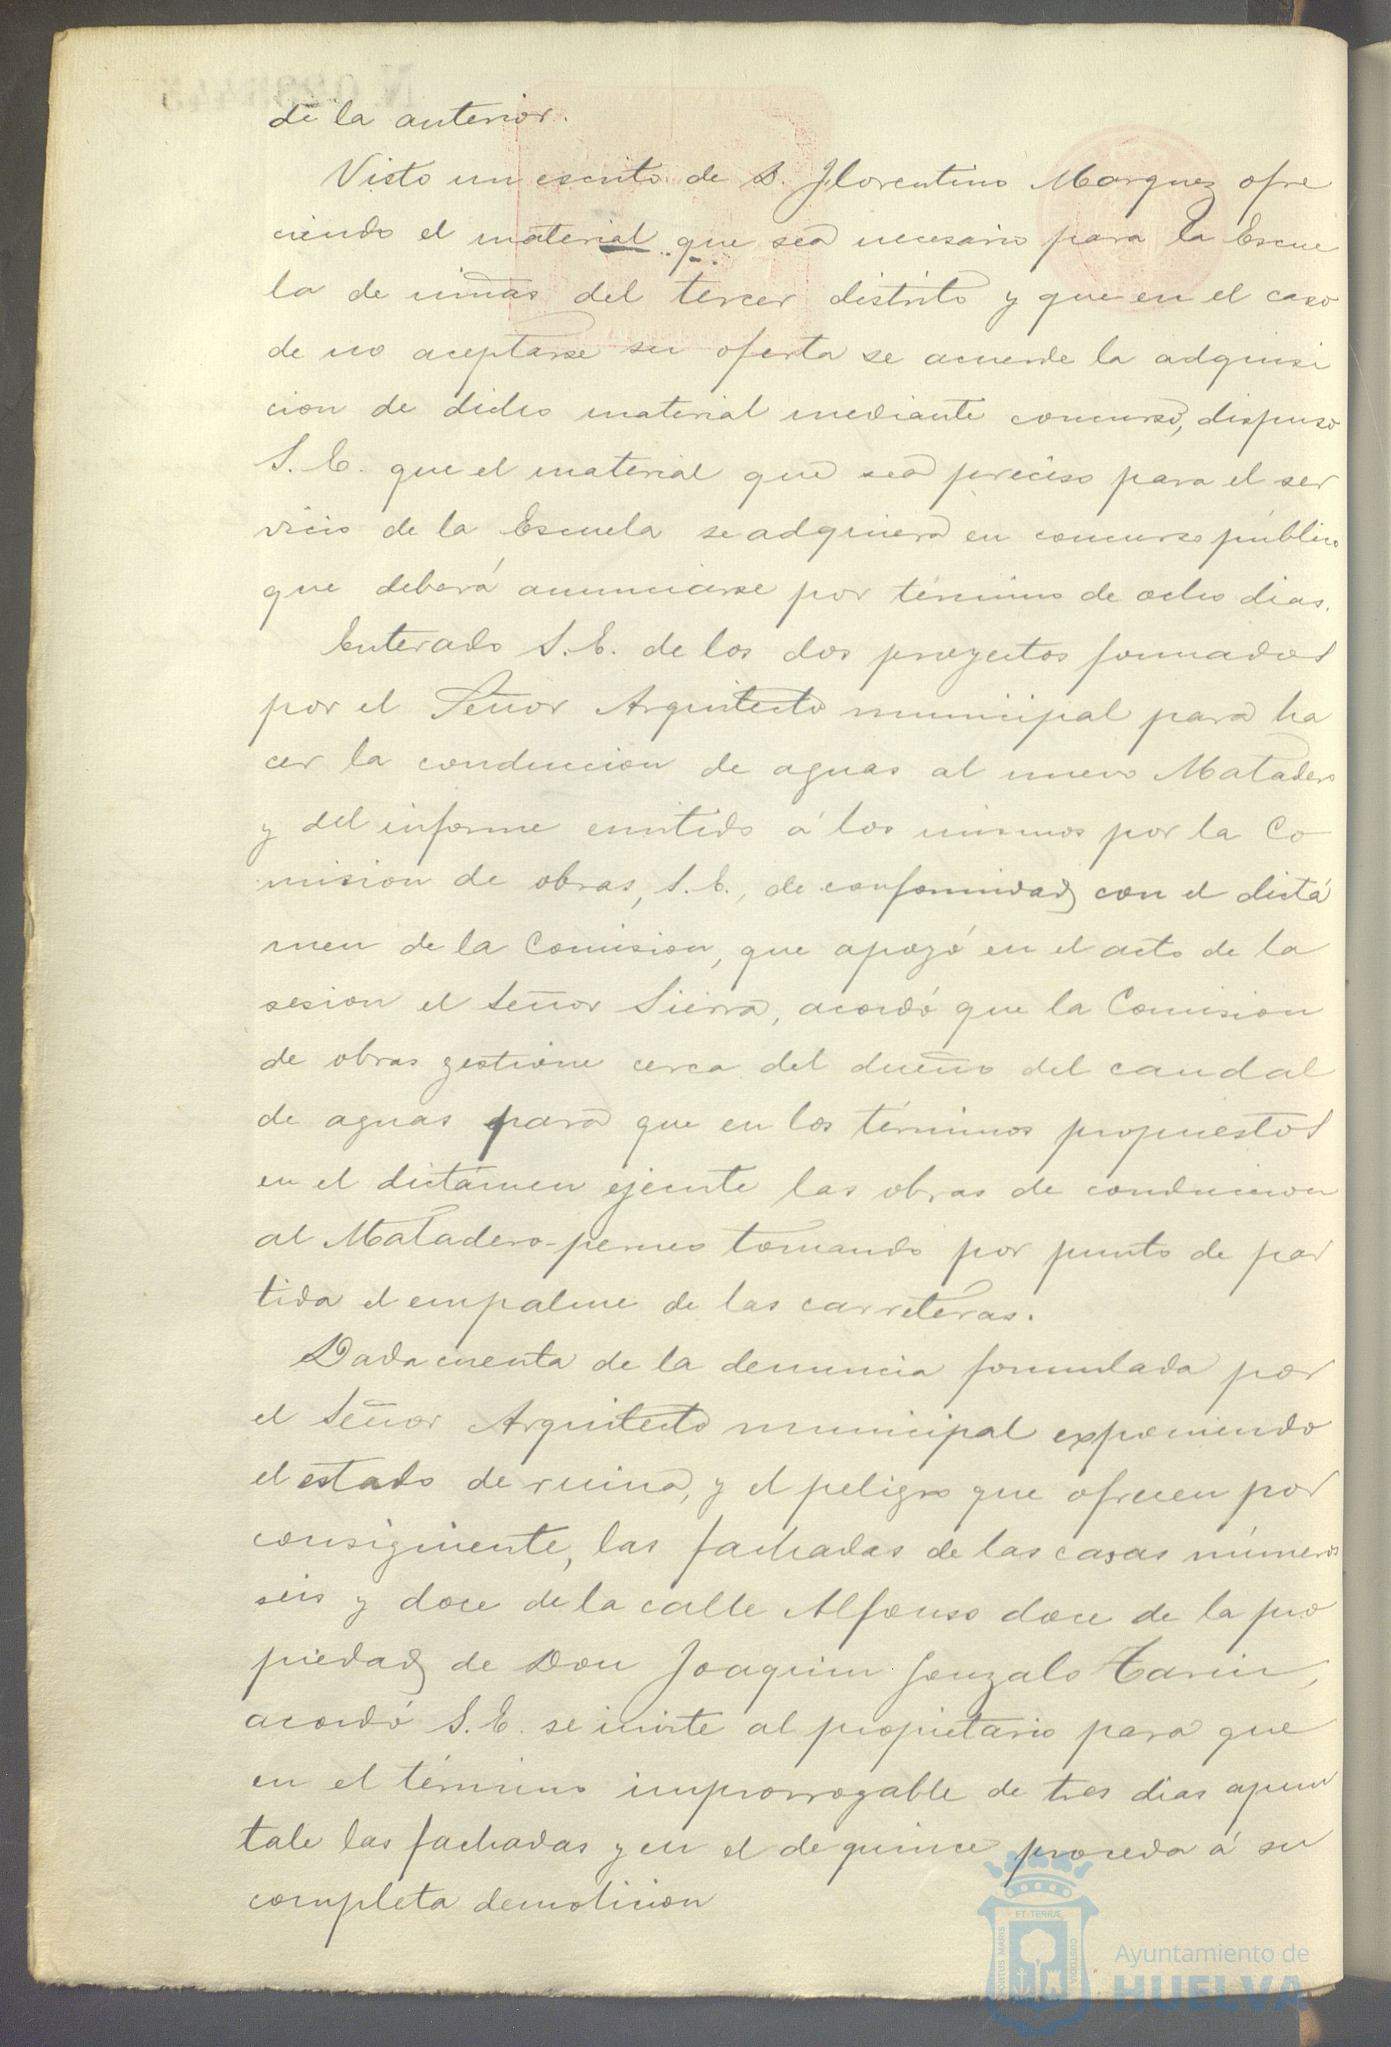 de la anterior.
Visto un escrito de D. Florentino Marquez ofre
ciendo el material que sea necesario para la Escue
la de niñas del tercer distrito y que en el caso
de no aceptarse su oferta se acuerde la adquisi
cion de dicho material mediante concurso, dispuso
S. E. que el material que sea preciso para el ser
vicio de la Escuela se adquiera en concurso público
que deberá anunciarse por término de ocho dias.
Enterado S. E. de los dos proyectos formados
por el Señor Arquitecto municipal para ha
cer la conduccion de aguas al nuevo Matadero
y del informe emitido á los mismos por la Co
mision de obras, S. E., de conformidad con el dictá
men de la Comision, que apoyó en el acto de la
sesion el Señor Sierra, acordó que la Comision
de obras gestione cerca del dueño del caudal
de aguas para que en los términos propuestos
en el dictámen ejecute las obras de conduccion
al Matadero- tomando por punto de par
tida el empalme de las carreteras.
Dada cuenta de la denuncia formulada por
el Señor Arquitecto municipal exponiendo
el estado de ruina, y el peligro que ofrecen por
consiguiente, las fachadas de las casas números
seis y doce de la calle Alfonso doce de la pro
piedad de Don Joaquin Gonzalo Tarin,
acordó S. E. se invite al propietario para que
en el término improrrogable de tres dias apun
tale las fachadas y en el de quince proceda á su
completa demolicion
Ayuntamiento de
HUELVA